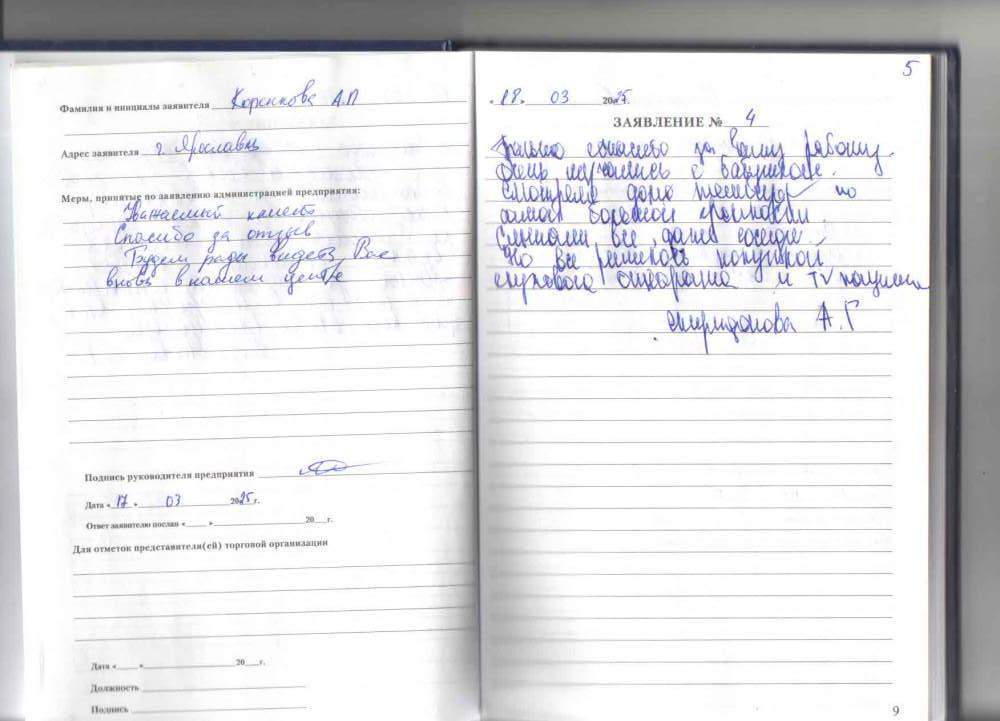 Фамилия и инициалы заявителя Коренкова А.П
Адрес заявителя г. Ярославль
Меры, принятые по заявлению администрацией предприятия:
Уважаемый клиент
Спасибо за отзыв
Будем рады видеть Вас
вновь в нашем центре
Подпись руководителя предприятия
Дата « 17 » 03 2025 г.
Ответ заявителю послан « » 20 г.
Для отметок представителя(ей) торговой организации
Дата « » 20 г.
Должность
Подпись
5
18. 03 2025г.
ЗАЯВЛЕНИЕ № 4
спасибо за Вашу работу.
Очень мучались с бабушкой.
смотрела дома телевизор по
самой большой громкости.
Слышали все, даже соседи.
Но все решилось покупкой
слухового аппарата и TV
Спиридонова А.Г
9